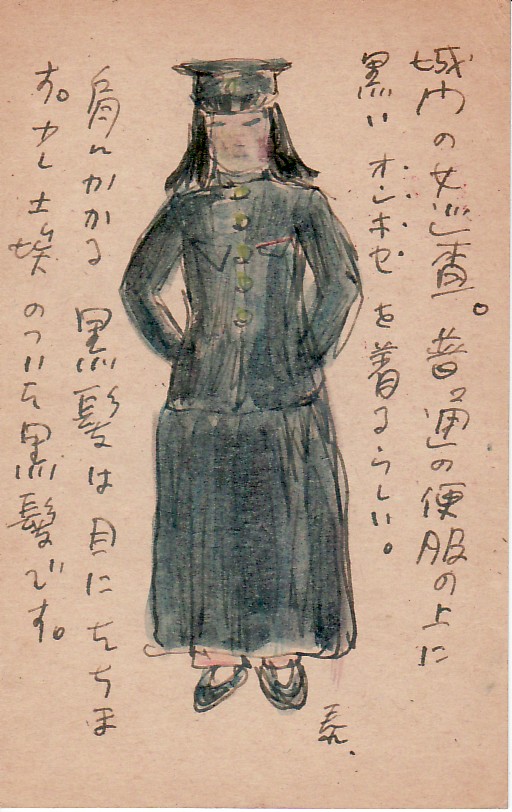 城内の女巡査。普通の便服の上に
黒い オンボゼ を着るらしい。
肩にかかる 黒髪は目にたちま
す。少し土埃のついた黒髪です。
泰.